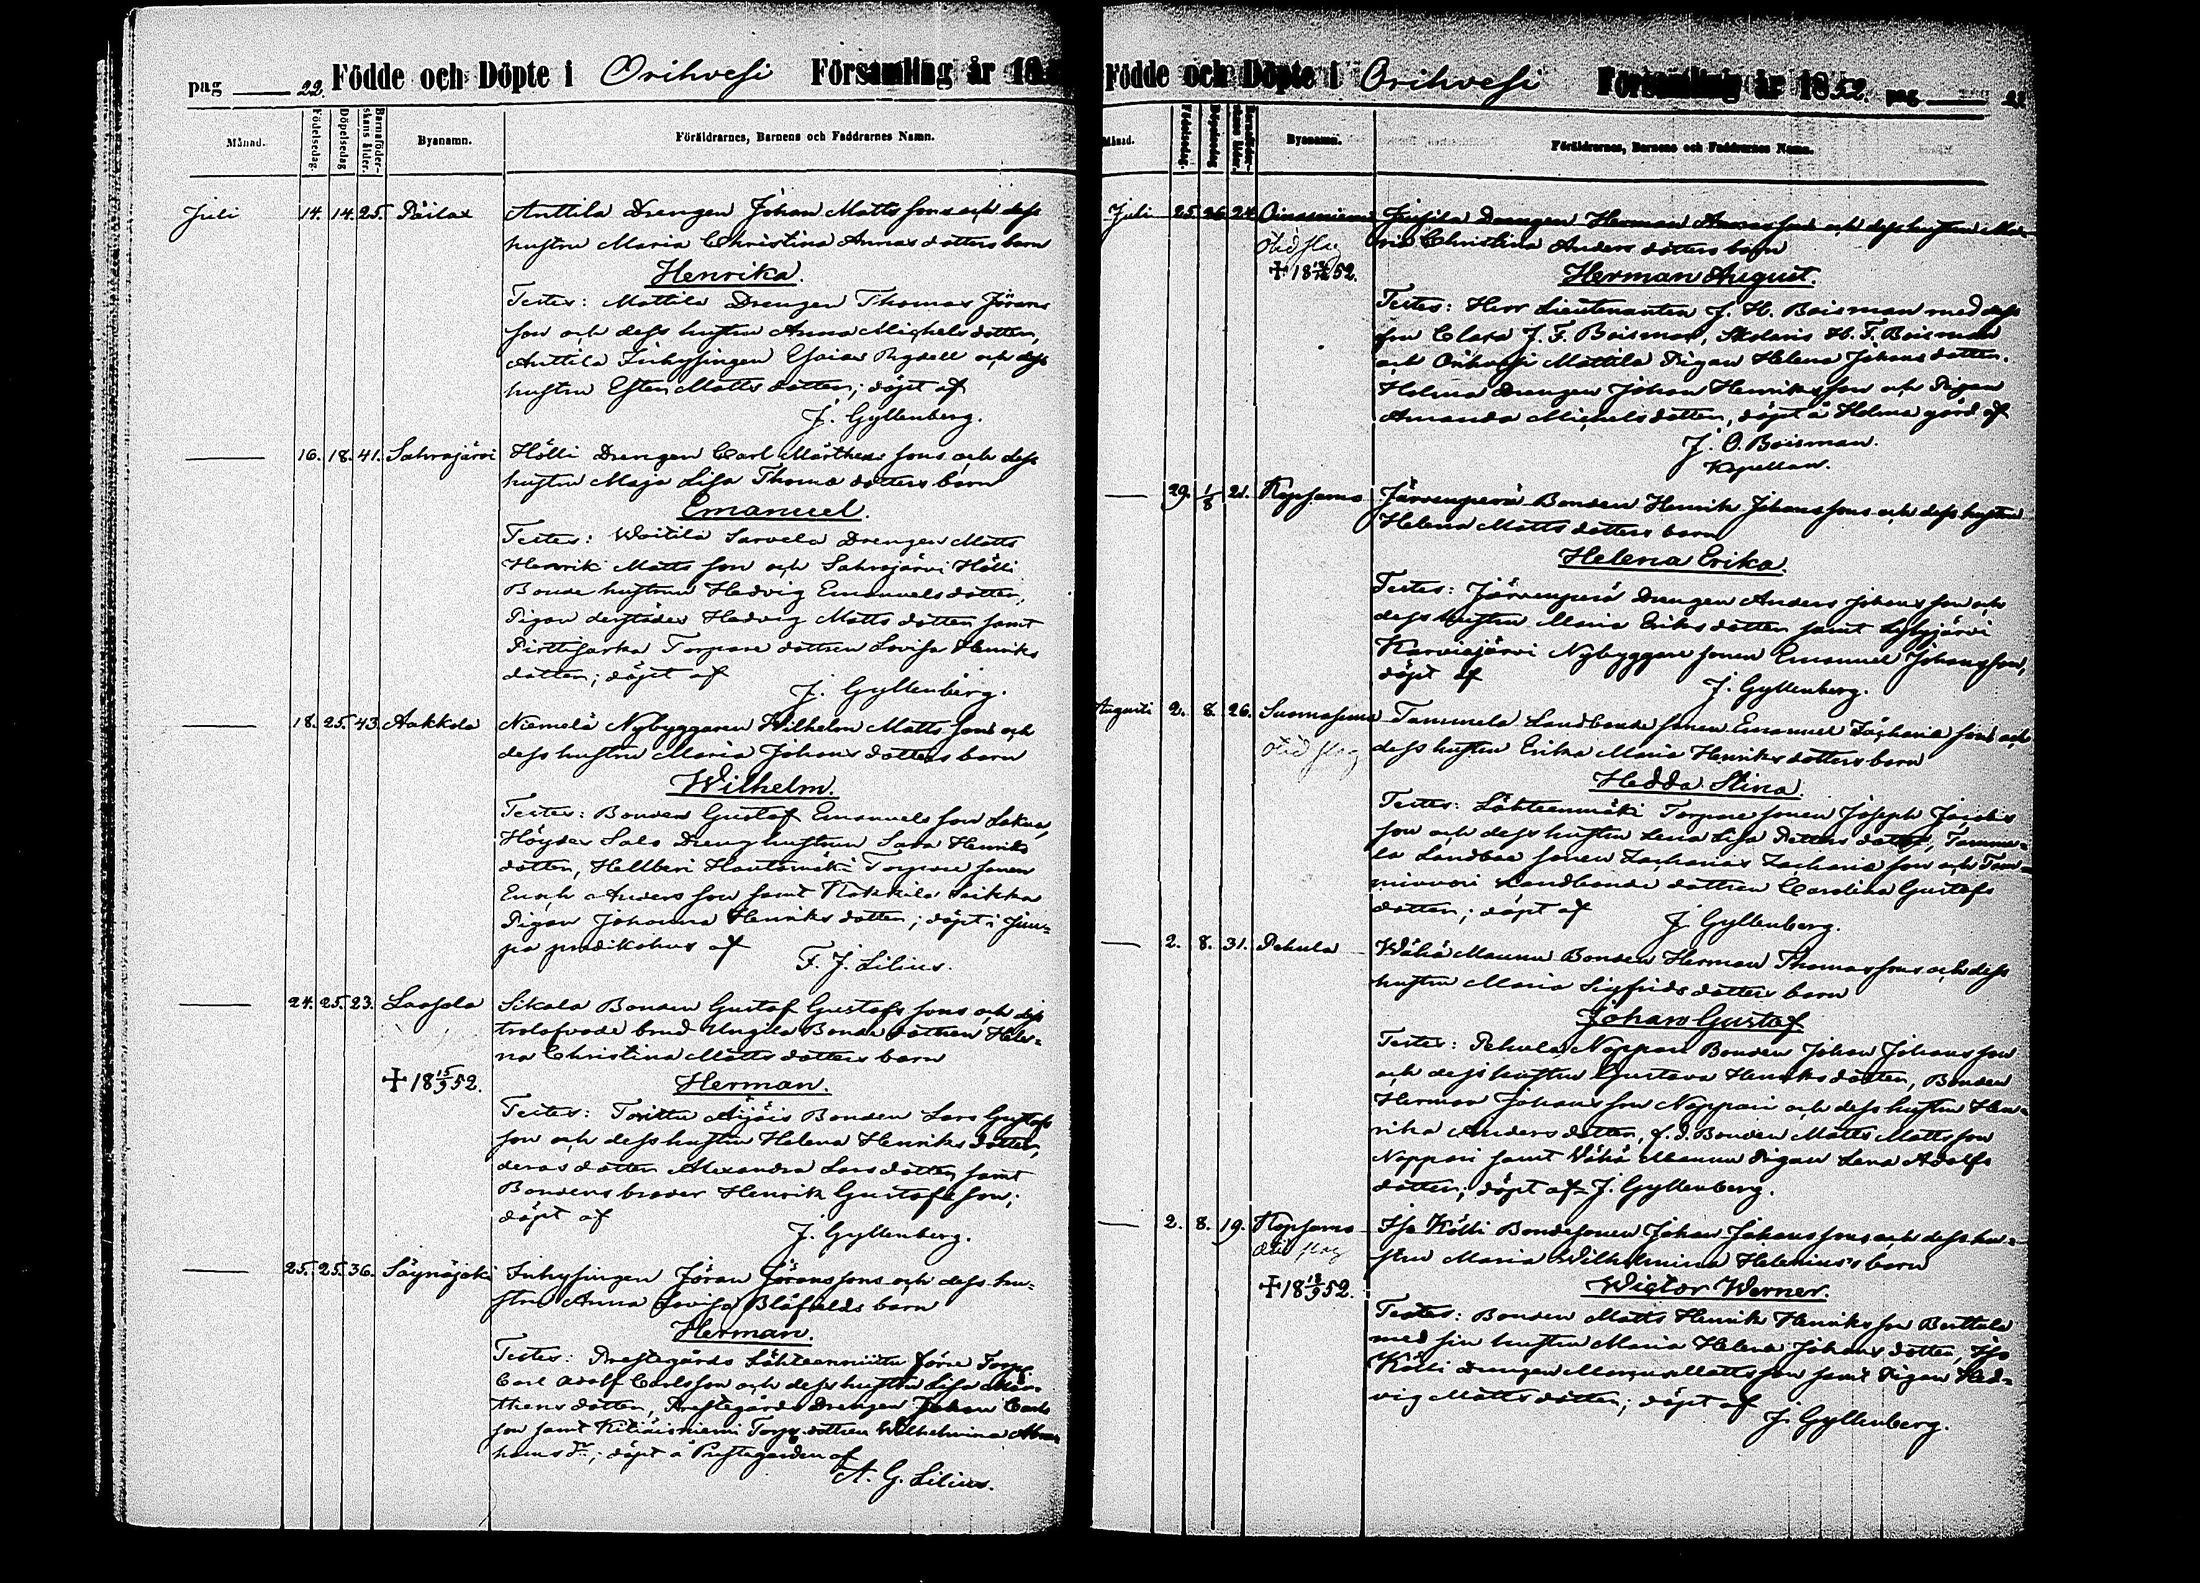 pag 22. Födde och Döpte i Orihvesi Församling år 18
Månad. Födelsedag. Döpelsedag Barnaföderskans ålder. Byanamn. Föräldrarnes, Barnens och Faddrarnes Namn.
Juli 14. 14. 25. Päilax Anttila Drengen Johan Matts sons och dess
hustru Maria Christina Annas dotters barn
Henrika.
Testes: Mattila Drengen Thomas Jörans
son och dess hustru Anna Michels dotter,
Anttila Inhysingen Esaias Rydell och dess
hustru Ester Matts dotter; döpt af
J. Gyllenberg.
16. 18. 41. Sahrajärvi Hölli Drengen Carl Mårthens sons och dess
hustru Maja Lisa Thomas dotters barn
Emanuel.
Testes: Woitila Sarvela Drengen Matts
Henrik Matts son och Sahrajärvi Hölli
Bonde hustrun Hedvig Emanuels dotter,
Pigan derstädes Hedvig Matts dotter samt
Pirttisarka Torpare dottren Lovisa Henriks
dotter; döpt af
J. Gyllenberg.
18. 25. 43. Aakkola Niemelä Nybyggaren Wilhelm Matts sons och
dess hustru Maria Johans dotters barn
Wilhelm.
Testes: Bonden Gustaf Emanuels son
Salo Drenghustrun Sara Henriks
dotter, Hellberi Hautamäki Torpare sonen
Enoch Anders son samt Kokkila
Pigan Johanna Henriks dotter; döpt i
pa predikohus af
F. J. Lilius.
24. 25. 23. Laasola Sikala Bonden Gustaf Gustafs sons och dess
trolofvade brud Ungila Bonde dottren Hele-
na Christina Matts dotters barn
+ 18 15/9 52. Herman.
Testes: Torittu Äijäis Bonden Lars Gustafs
son och dess hustru Helena Henriks dotter,
deras dotter Alexandra Lars dotter samt
Bondens broder Henrik Gustafs son;
döpt af
J. Gyllenberg.
25. 25. 36. Säynäjoki Inhysingen Jöran Görans sons och dess hu-
stru Anna Lovisa Blåfields barn
Herman.
Testes: Prestegårds Lähteenniittu förre Torp.
Carl Adolf Carlsson och dess hustru Lisa Mår-
thens dotter, Prestegårds Drengen Johan Carls
son samt Torp. dottren Wilhelmina Abra-
hams dr; döpt å Prestegården af
A. G. Lilius.
Födde och Döpte i Orihvesi Församling år 1852. pag
Månad. Födelsedag. Döpelsedag Barnaföderskans ålder. Byanamn. Föräldrarnes, Barnens och Faddrarnes Namn.
Juli 25. 26. 24. Oinasniemi Drengen Herman sons och dess hustru Ma-
ria Christina Anders dotters barn
+ 52. Herman August.
Testes: Herr Lieutenanten J. H. Boisman med dess
fru Clara J. F. Boisman, H. F. Boisman
och Orihvesi Mattila Pigan Helena Johans dotter.
Holma Drengen Johan Henriks son och Pigan
Amanda Michels dotter, döpt å Holma gård af
J. O. Boisman.
Kapellan.
29. 1/8 21. Kopsamo Järvenperä Bonden Henrik Johans sons och dess hustru
Helena Matts dotters barn
Helena Erika.
Testes: Järvenperä Drengen Anders Johans son och
dess hustru Maria Eriks dotter samt
Karviajärvi Nybyggare sonen Emanuel Johansson,
döpt af
J. Gyllenberg.
Augusti 2. 8. 26. Suomasema Tammela Landbonde sonen Emanuel Zacharia sons och
dess hustru Erika Maria Henriks dotters barn
Hedda Stina.
Testes: Lähteenmäki Torpare sonen Joseph Jacobs
son och dess hustru Lena Lisa Petters dotter, Tamme-
la Landboe sonen Zacharias Zacharia son och Tam-
Landbonde dottren Carolina Gustafs
dotter; döpt af
J. Gyllenberg.
2. 8. 31. Pehula Wähä Maunu Bonden Herman Thomas sons och dess
hustru Maria Sigfrids dotters barn
Johan Gustaf
Testes: Pehula Noppari Bonden Johan Johans son
och dess hustru Gustava Henriks dotter, Bonden
Herman Johans son Noppari och dess hustru Hen-
rika Anders dotter, f. d. Bonden Matts Matts son
Noppari samt Wähä Maunu Pigan Lena Adolfs
dotter; döpt af J. Gyllenberg.
2. 8. 19. Kopsamo Iso Kölli Bondesonen Johan Johans sons och dess hu-
stru Maria Wilhelmina Helenius's barn
+ 18 52. Wictor Werner.
Testes: Bonden Matts Henrik Henriks son Berttula
med sin hustru Maria Helena Johans dotter, Iso
Kölli Drengen Marcus Matts son samt Pigan Hed-
vig Matts dotter; döpt af
J. Gyllenberg.